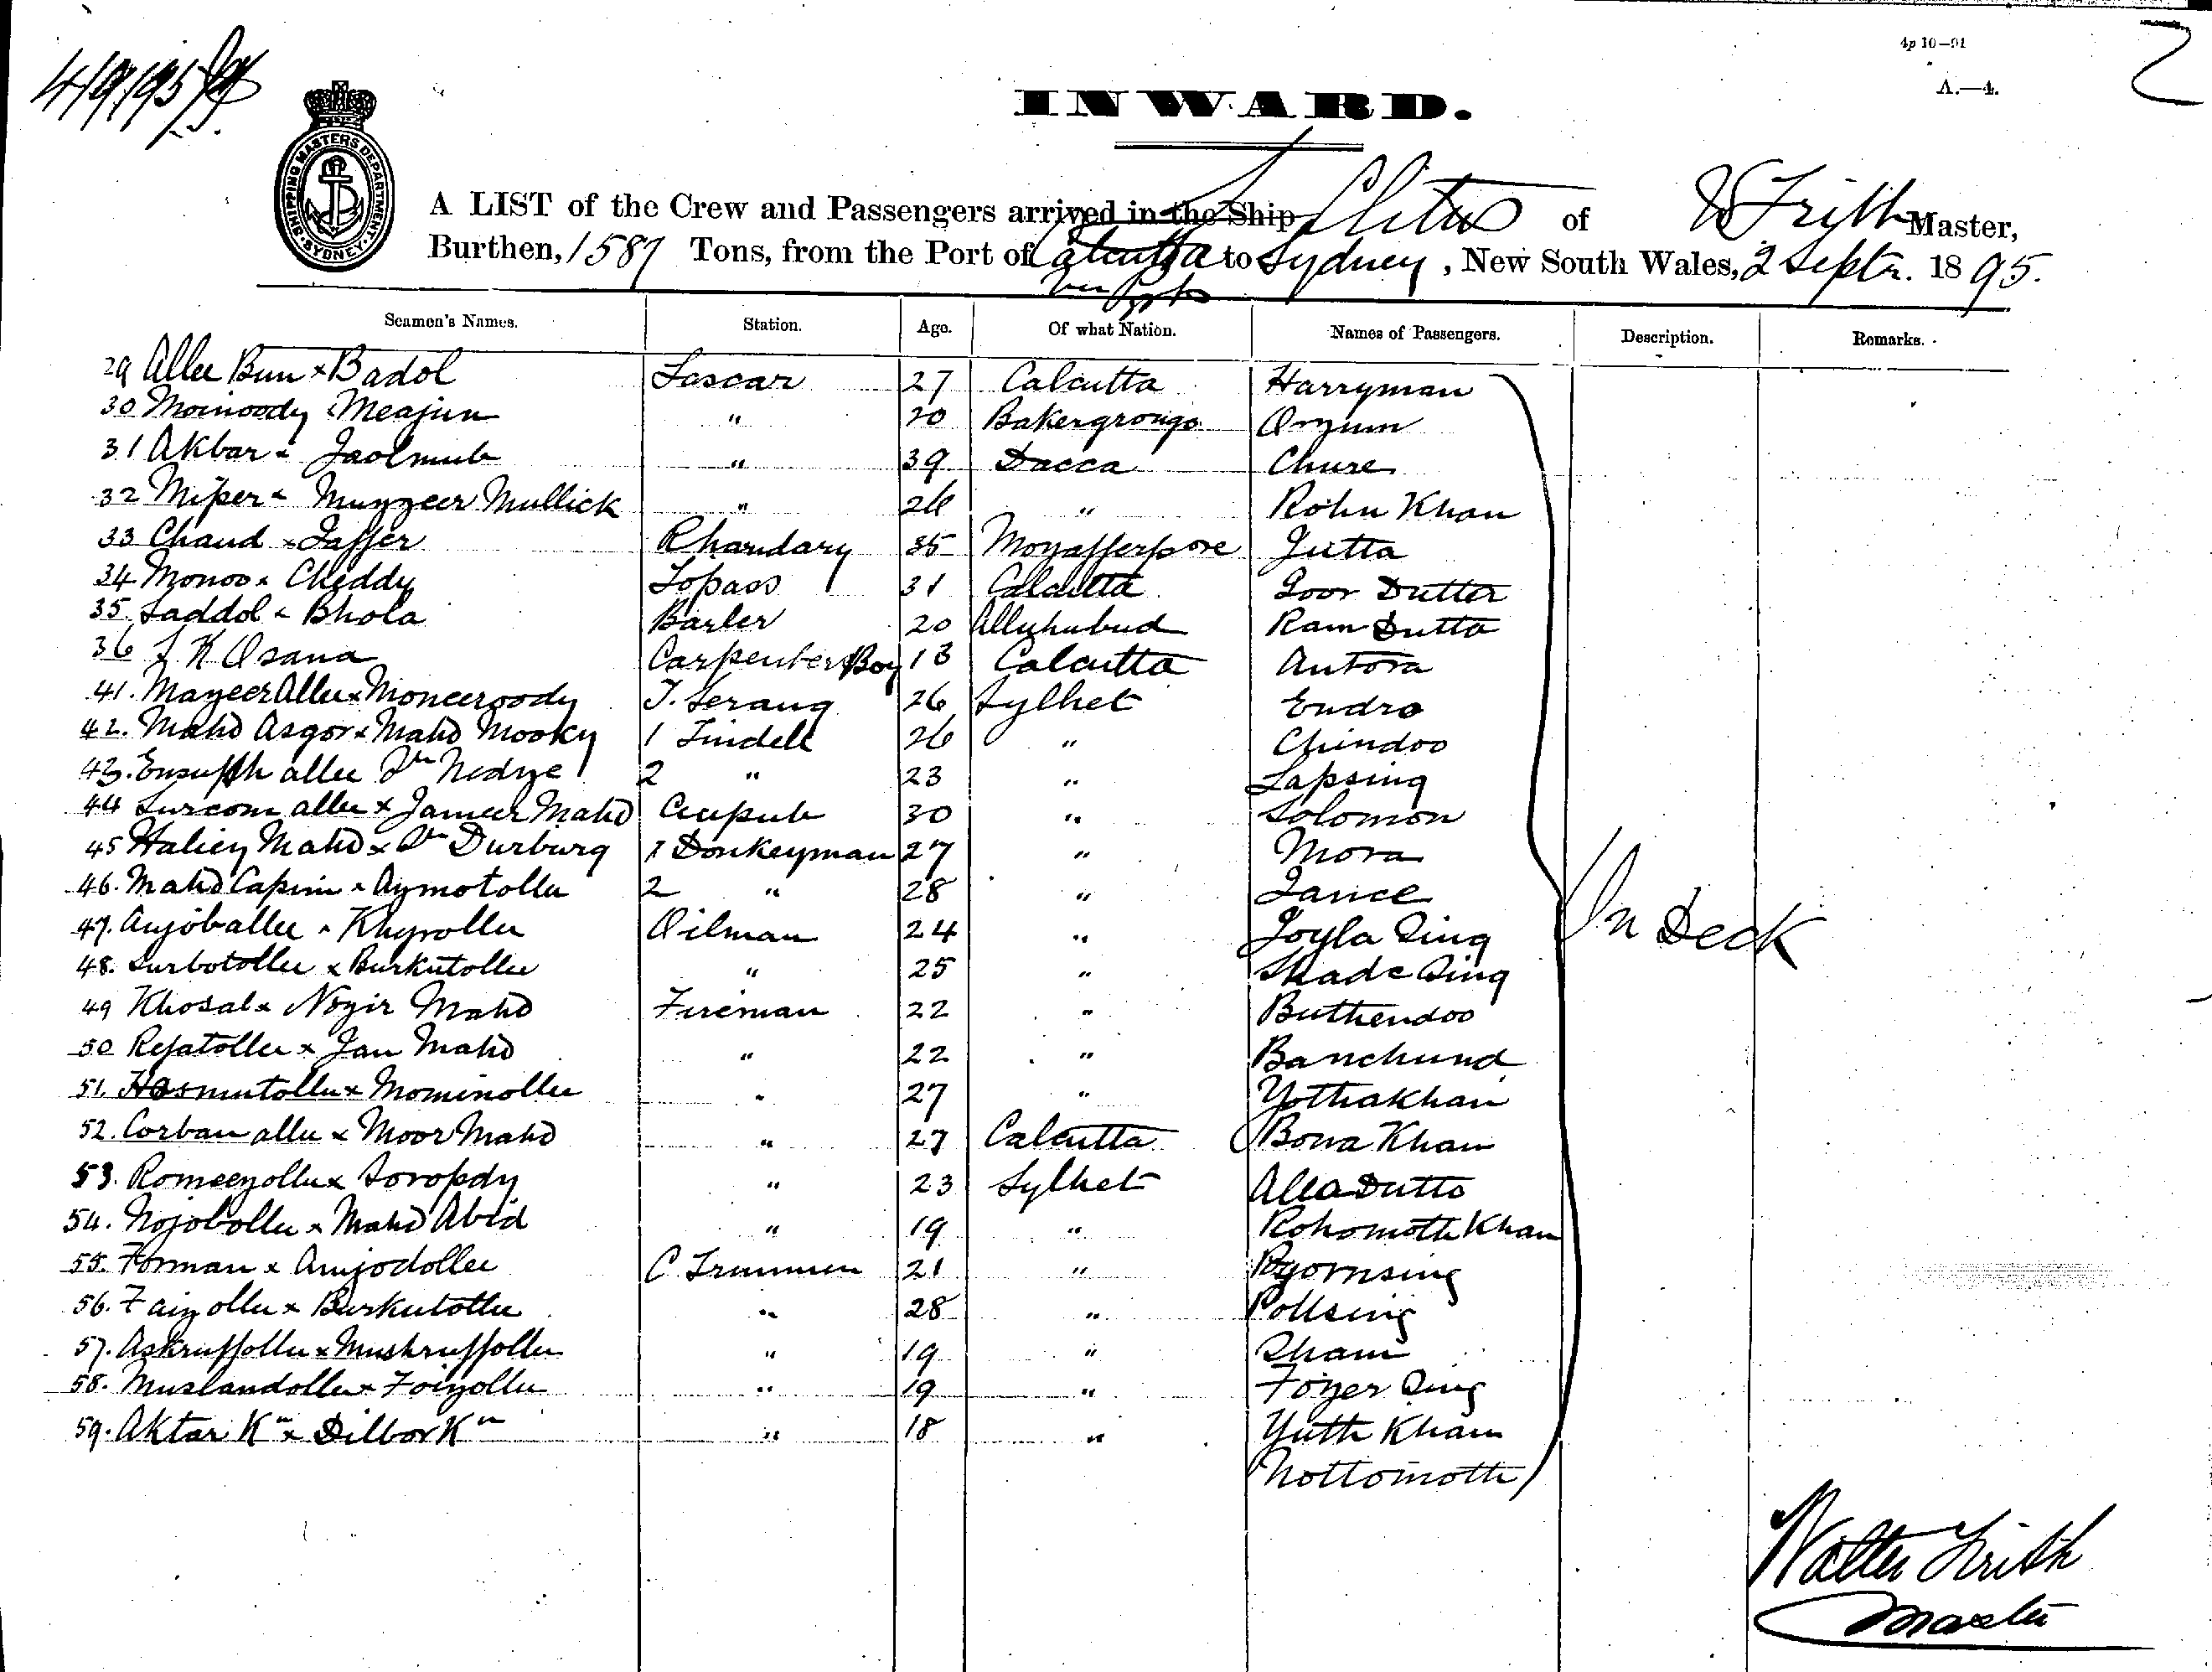 4/9/95
4p 10—91
A.—4.
INWARD.
SHIPPING MASTERS DEPARTMENT SYDNEY
A LIST of the Crew and Passengers arrived in the Ship Clitus of W Frith Master,
Burthen, 1587 Tons, from the Port of Calcutta to Sydney, New South Wales, 2 Septr. 1895.
Seamen's Names. Station. Age. Of what Nation. Names of Passengers. Description. Remarks.
29 Allee Bun x Badol Lascar 27 Calcutta Harryman
30 Moinoody x Meajun " 20 Bakergronge Omjum
31 Akbar x " 39 Dacca Chure
32 x Muzzeer Mullick " 26 " Rohu Khan
33 Chand x Jaffer Bhandary 35 Mozafferpore Jutta
34 Monoo x Cheddy Topass 31 Calcutta Goor Dutter
35 Saddol x Bhola Barber 20 Alluhubud Ram Dutta
36 K Osana Carpenters Boy 18 Calcutta Autora
41. Mazeer Allee x Monceroody F. Serang 26 Sylhet Endro
42. Mahd Asgor x Mahd Mooky 1 Tindell 26 " Chindoo
43. Ensuffh allee Nedze 2 " 23 " Lapsing
44 Surcom allee x Jameer Mahd 30 " Solomon
45 Haliey Mahd x Durburg 1 Donkeyman 27 " Mora
46. Mahd Capim x Aymotollee 2 " 28 " Jance
47. Aujoballee x Khyrollee Oilman 24 " Joyla Sing
48. Surbotollee x Burkutollee " 25 " Shade Sing
49 Khosal x Nozir Mahd Fireman 22 " Buthendoo
50 Rejatollee x Jan Mahd " 22 " Banchund
51. Hosmutollee x Mominollee " 27 " Yothakhan
52. Corban allee x Moor Mahd " 27 Calcutta Bowa Khan
53. Romeezollee x Soropdy " 23 Sylhet Alla Dutto
54. Nojobollee x Mahd Abid " 19 " Rohomoth Khan
55. Forman x Amjodollee C Trimmer 21 " Bgornsing
56. Faizollee x Burkutollee " 28 " Pollsing
57. Askruffollee x Mushruffollee " 19 " Sham
58. Muslandollee x Foizollee " 19 " Foyer Sing
59. Aktar Kn x Dilbor Kn " 18 " Yuth Khan
Nottomoth
On Deck
Walter Frith
Master